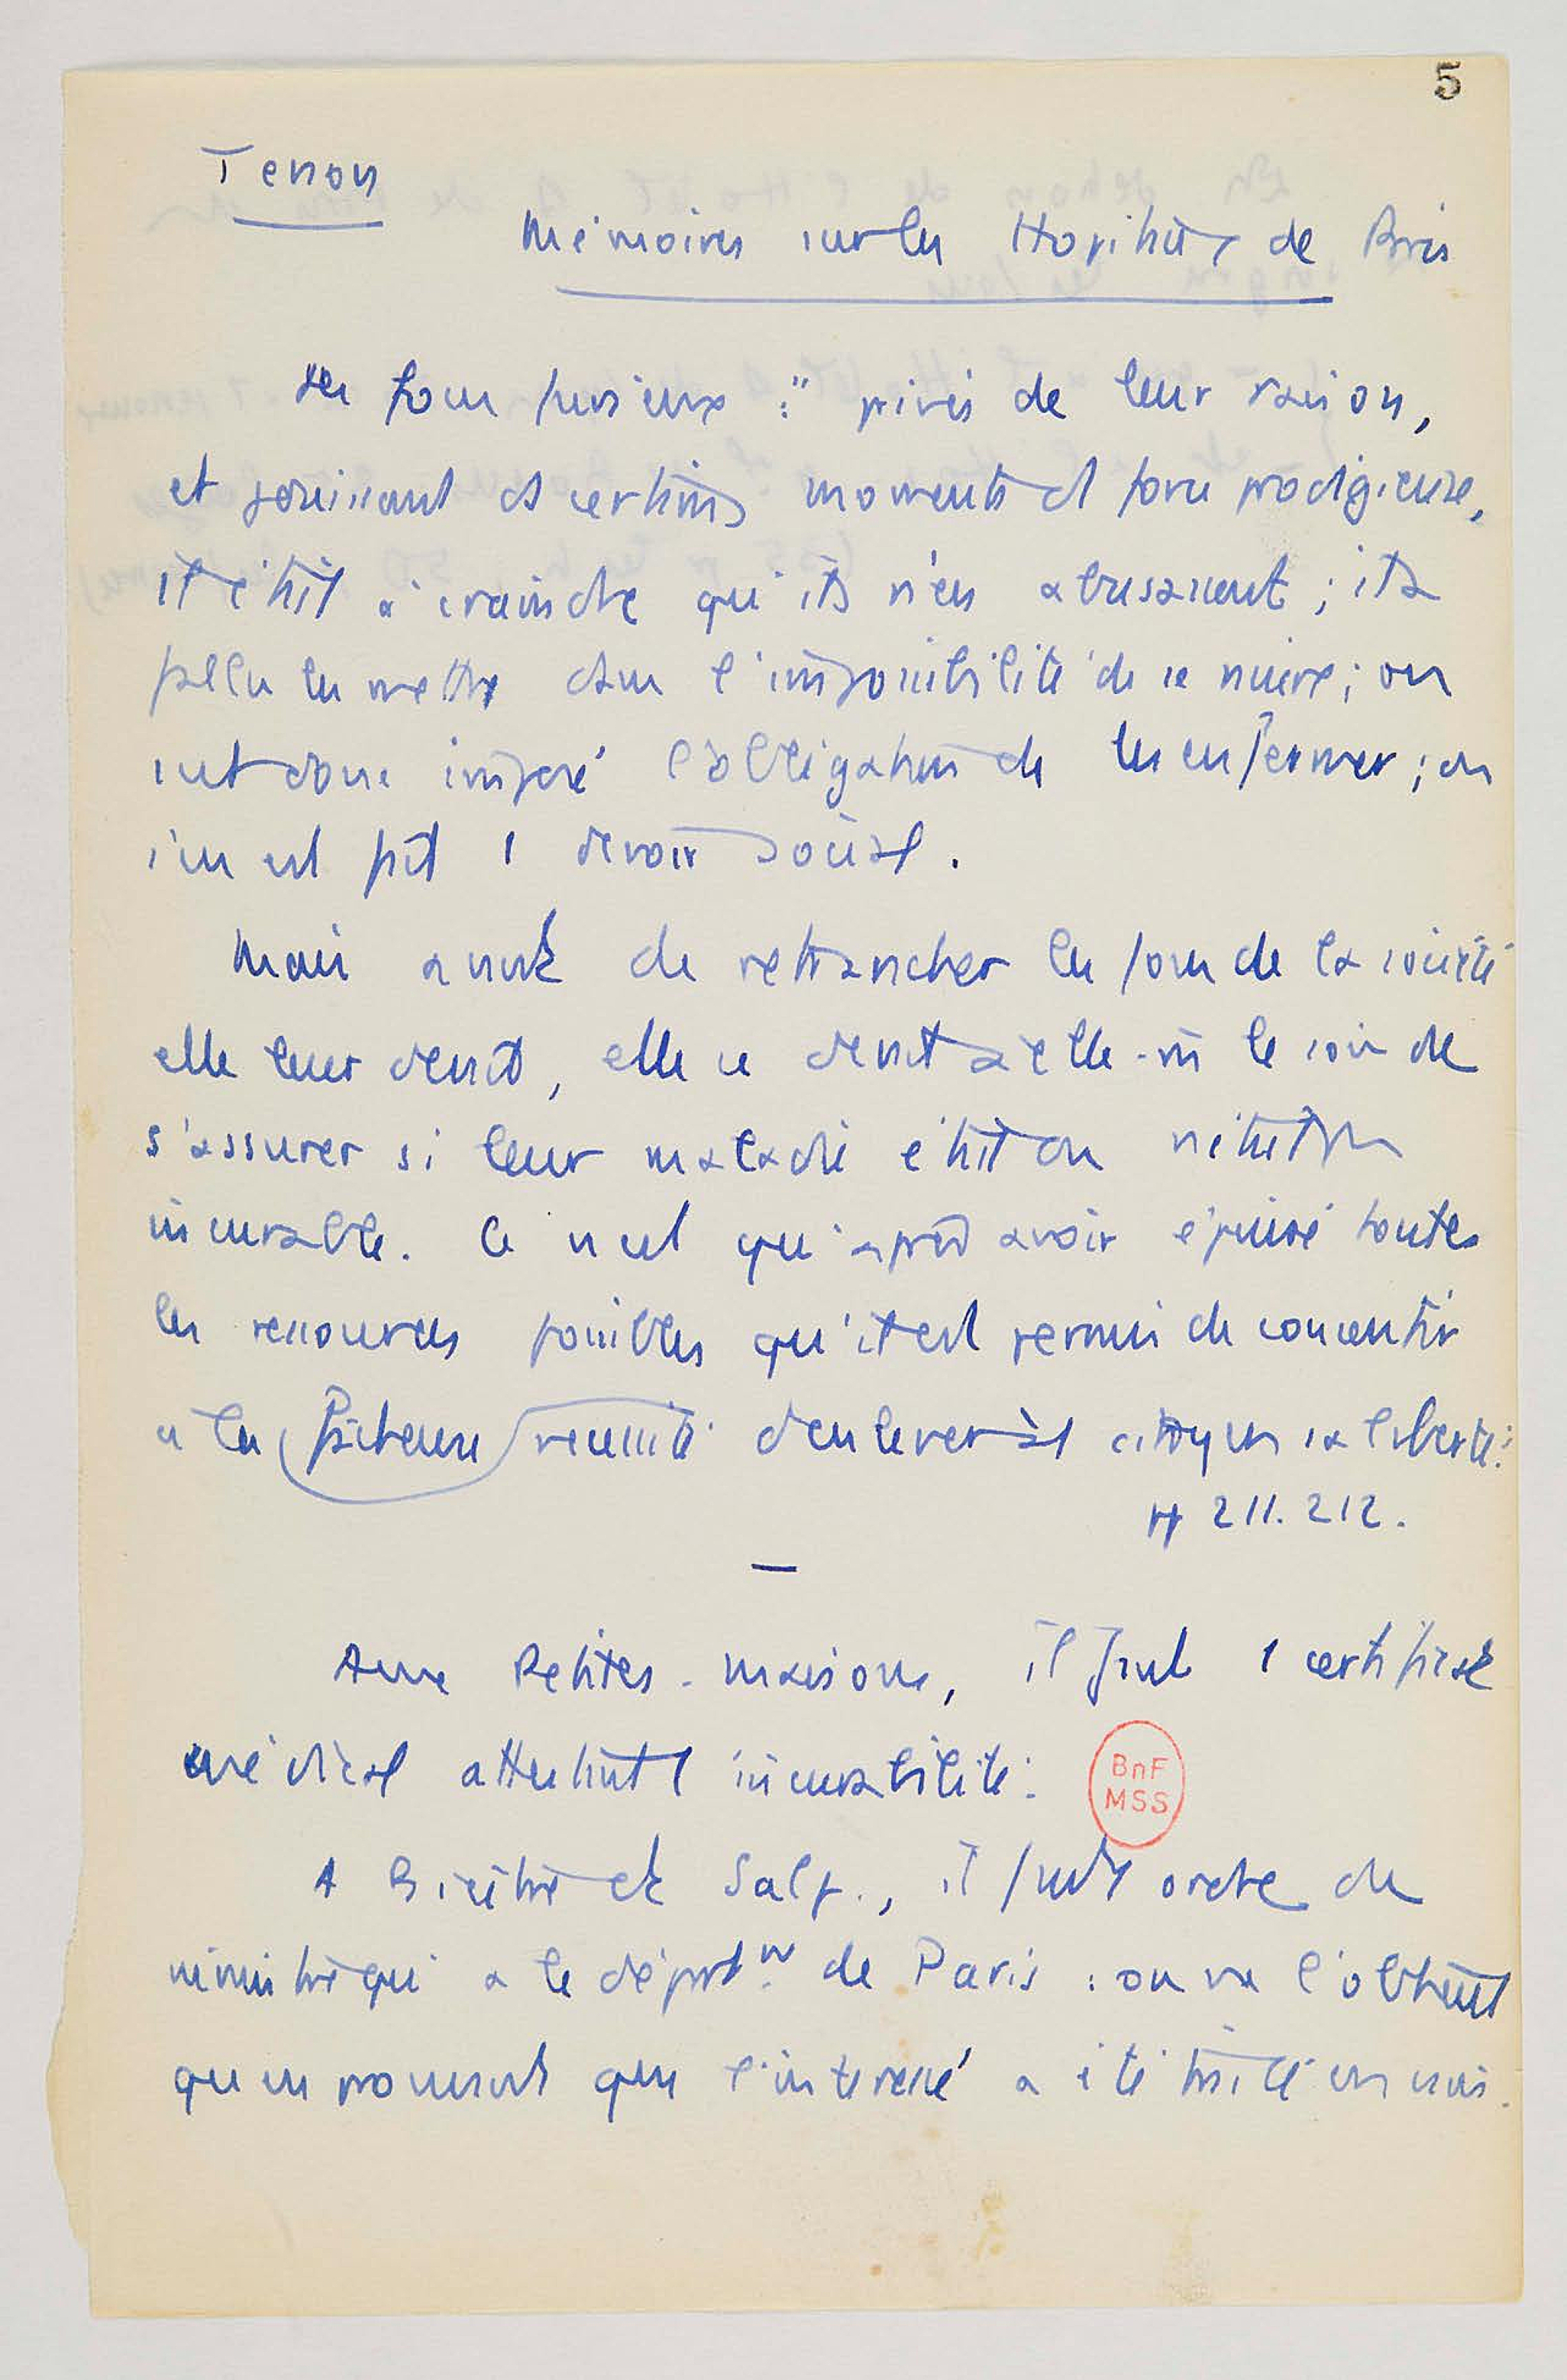 5
Tenon
Mémoires sur les Hopitaux de Paris
Les fous furieux : " privés de leur raison,
et jouissant ds certains moments d1 force prodigieuse,
il était à craindre qu'ils n'en abusassent ; il a
fallu les mettre dans l'impossibilité de nuire ; on
s'est donc imposé l'obligation de les enfermer ; on
s'en est fait 1 devoir social.
Mais avant de retrancher les fous de la société
elle leur devait, elle se devait à elle-m le soin de
s'assurer si leur maladie était ou n'était pas
incurable. Ce n'est qu'après avoir épuisé toutes
les ressources possibles qu'il est permis de consentir
à la fâcheuse nécessité d'enlever à 1 citoyen sa liberté."
pp 211. 212.
—
Aux Petites-maisons, il faut 1 certificat
médical attestant l'incurabilité.
A Bicêtre et Salp., il faut 1 ordre du
ministre qui a le départ. de Paris : on ne l'obtient
qu'en prouvant que l'intéressé a été traité en vain.
BnF
MSS